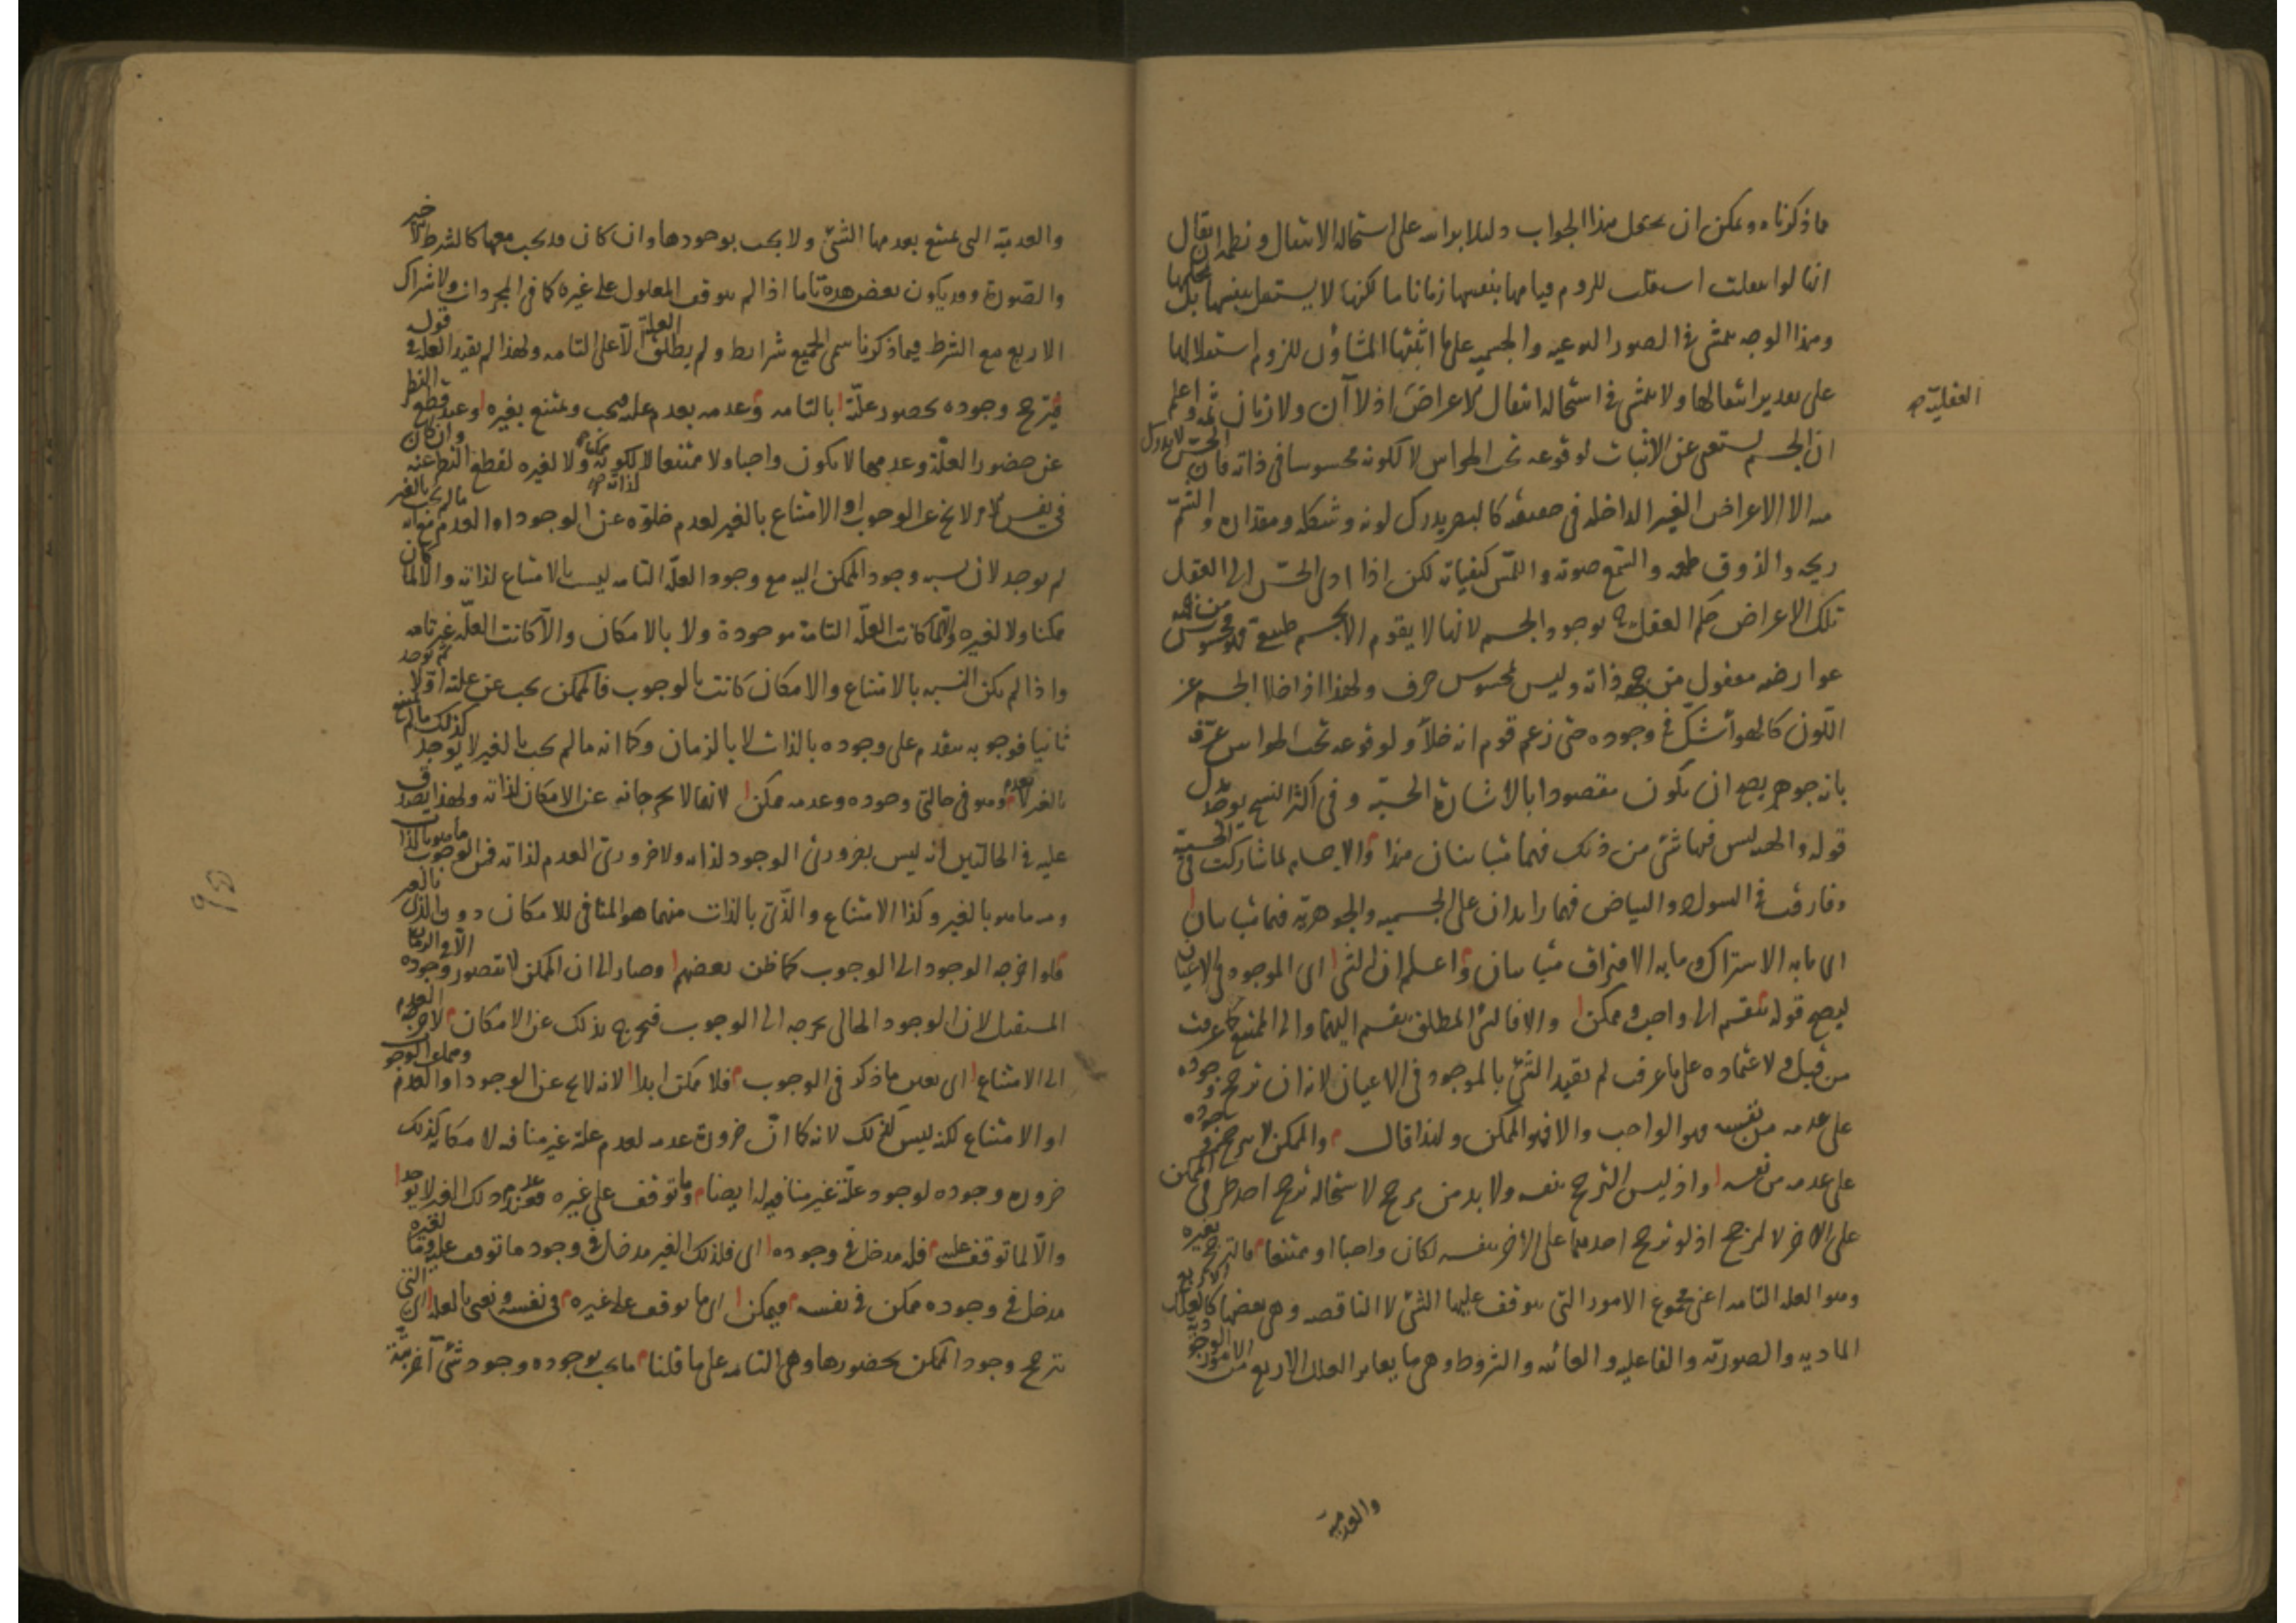 ما ذكرناه ويمكن ان يجعل هذا الجواب دليلا برأسه على استحالة الانتقال ونظمه ان يقال
انها لو انتقلت استقلت للزوم قيامها بنفسها زمانا ما لكنها لا يستقل بنفسها بل بمحلها
وهذا الوجه يتمشى في الصور النوعية والجسمية على ما اثبتها المشاؤن للزوم استقلالها
على تقدير انتقالها ولا يتمشى في استحالة انتقال الاعراض اذ لا آن ولا زمان ثمه واعلم
ان الجسم يستغنى عن الاثبات لوقوعه تحت الحواس لا لكونه محسوسا في ذاته فان الحس لا يدرك
منه الا الاعراض الغير الداخلة في حقيقته كالبصر يدرك لونه وشكله ومقداره والشم
ريحه والذوق طعمه والسمع صوته واللمس كيفياته لكن اذا ادى الحس الى العقل
تلك الاعراض حكم العقل بوجود الجسم لانها لا يقوم الا بجسم طبيعي فهو محسوس من جهة
عوارضه معقول من جهة ذاته وليس بمحسوس صرف ولهذا اذا خلا الجسم عن
اللون كالهواء شك في وجوده حتى زعم قوم انه خلأ ولوقوعه تحت الحواس عرفه
بانه جوهر يصح ان يكون مقصودا بالاشارة الحسية وفي اكثر النسخ يوجد بدل
قوله والهيه ليس فيها شئ من ذلك فهما متباينان هذا والاجسام لما شاركت في الجسمية
وفارقت في السواد والبياض فهما زايدان على الجسمية والجوهرية فهما متباينان
اى ما به الاشتراك وما به الافتراق متباينان واعلم ان الشئ اى الموجود في الاعيان
ليصح قوله ينقسم الى واجب وممكن والا فالشئ المطلق ينقسم اليهما والى الممتنع كما عرفت
من قبل ولاعتماده على ما عرفت لم يقيد الشئ بالموجود في الاعيان لانه ان ترجح وجوده
على عدمه من نفسه فهو الواجب والا فهو الممكن ولهذا قال والممكن لا يترجح وجوده
على عدمه من نفسه واذ ليس الترجح بنفسه ولا بد من مرجح لاستحالة ترجح احد طرفي الممكن
على الآخر لا لمرجح اذ لو ترجح احدهما على الآخر بنفسه لكان واجبا او ممتنعا فالترجح بغيره
وهو العلة التامة اعنى مجموع الامور التى يتوقف عليها الشئ لا الناقصة وهى بعضها كالعلل الاربع
المادية والصورية والفاعلية والغائية والشروط وهى ما يغاير العلل الاربع من الامور الوجودية
والعدمية
العقلية صح
والعدمية التى يمتنع بعدمها الشئ ولا يجب بوجودها وان كان قد يجب معها كالشرط الاخير
والصورة وقد يكون بعض هذه تاما اذا لم يتوقف المعلول على غيره كما في المجردات ولاشتراك
الاربع مع الشرط فيما ذكرنا سمى الجميع شرايط ولم يطلق العلة الا على التامة ولهذا لم يقيد العلة في قوله
فيترجح وجوده بحضور علته اى التامة وعدمه بعدم علته فيجب ويمتنع بغيره وعند قطع النظر
عن حضور العلة وعدمها لا يكون واجبا ولا ممتنعا لا لذاته لكونه ممكنا ولا لغيره لقطع النظر عنه وان كان
في نفس الامر لا يخ عن الوجوب او الامتناع بالغير لعدم خلوه عن الوجود او العدم فانه ما لم يجب بالغير
لم يوجد لان نسبة وجود الممكن اليه مع وجود العلة التامة ليست بالامتناع لذاته والا لما كان
ممكنا ولا لغيره والا لما كانت العلة التامة موجودة ولا بالامكان والا كانت العلة غير تامة
واذا لم يكن النسبة بالامتناع والامكان كانت بالوجوب فالممكن يجب عن علته اولا ثم يوجد
ثانيا فوجوبه يتقدم على وجوده بالذات لا بالزمان وكما انه ما لم يجب بالغير لا يوجد كذلك ما لم يمتنع
بالغير لا يعدم وهو في حالتى وجوده وعدمه ممكن لانهما لا يخرجانه عن الامكان لذاته ولهذا يصدق
عليه في الحالتين انه ليس بضرورى الوجود لذاته ولا ضرورى العدم لذاته فمن الوجوب ما هو بالذات
ومنه ما هو بالغير وكذا الامتناع والذى بالذات منهما هو المنافى للامكان دون الذى بالغير
فلو اخرجه الوجود الى الوجوب كما ظن بعضهم وصار الى ان الممكن لا يتصور وجوده الا في الزمان
المستقبل لان الوجود الحالى يخرجه الى الوجوب فيخرج بذلك عن الامكان لاخرجه العدم
الى الامتناع اى بعين ما ذكر في الوجوب فلا ممكن ابدا لانه لا يخ عن الوجود او العدم
او الامتناع لكنه ليس كذلك لانه كما ان ضرورة عدمه لعدم علته غير منافية لامكانه كذلك
ضرورة وجوده لوجود علته غير منافية له ايضا وما توقف على غيره فعند عدم ذلك الغير لا يوجد
والا لما توقف عليه فله مدخل في وجوده اى فلذلك الغير مدخل في وجود ما توقف عليه وما لغيره
مدخل في وجوده ممكن في نفسه فيمكن اى ما توقف على غيره في نفسه ونعنى بالعلة اى التى
يترجح وجود الممكن بحضورها وهى التامة على ما قلنا ما يجب بوجوده وجود شئ آخر بتة